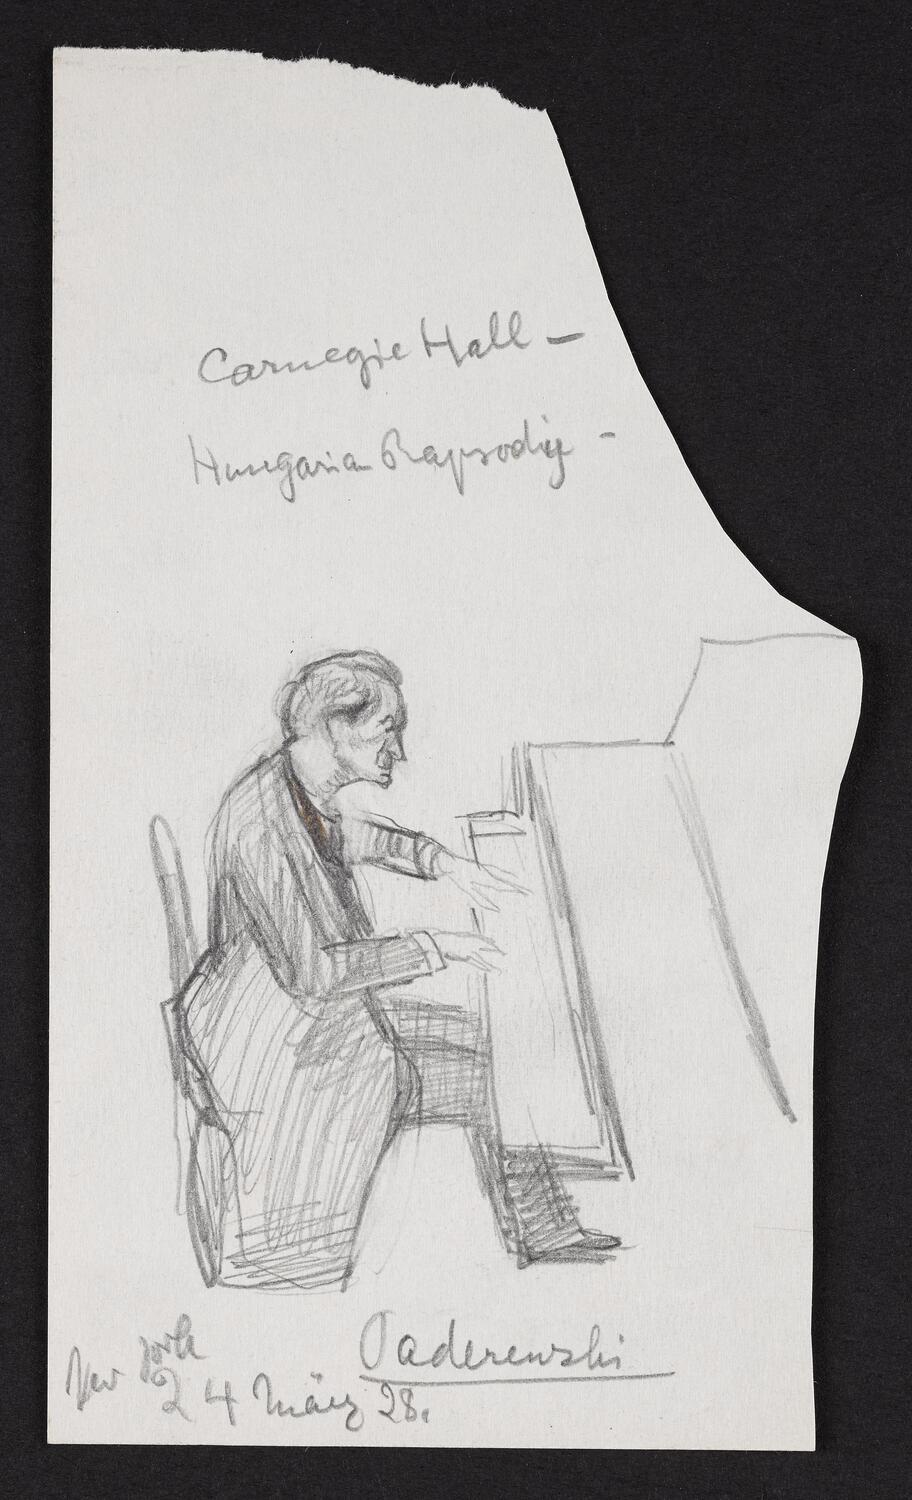 Carnegie Hall –
Hungarian Rapsodie –
Paderewski
New York
24 März 28.